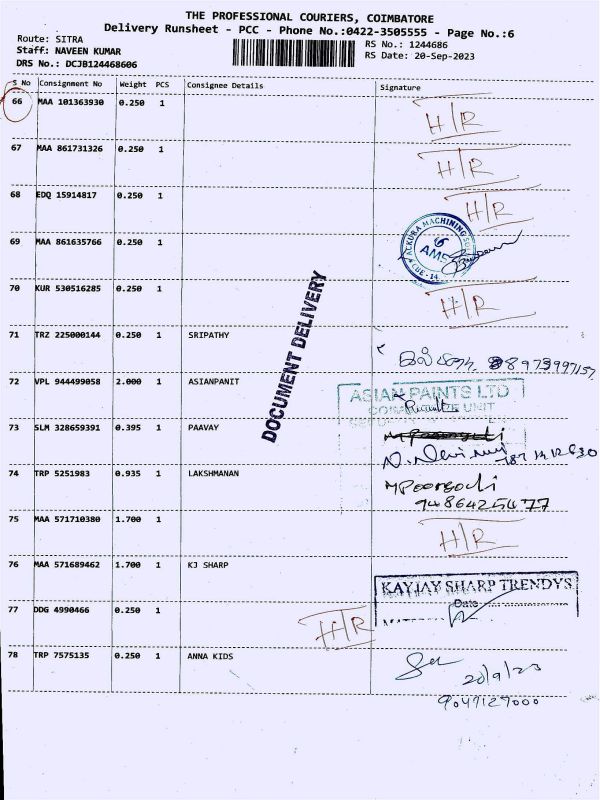 THE PROFESSIONAL COURIERS, COIMBATORE
Delivery Runsheet - PCC - Phone No.:0422-3505555 - Page No.:6
Route: SITRA
RS No.: 1244686
Staff: NAVEEN KUMAR
RS Date: 20-Sep-2023
DRS No.: DCJB124468606
S No Consignment No Weight PCS Consignee Details Signature
66 MAA 101363930 0.250 1 H/R
67 MAA 861731326 0.250 1 H/R
68 EDQ 15914817 0.250 1 H/R
69 MAA 861635766 0.250 1
MACHINING
AMS
CBE-14
70 KUR 530516285 0.250 1 H/R
DOCUMENT DELIVERY
71 TRZ 225000144 0.250 1 SRIPATHY
8973997157
72 VPL 944499058 2.000 1 ASIANPANIT
ASIAN PAINTS LTD
UNIT
73 SLM 328659391 0.395 1 PAAVAY
74 TRP 5251983 0.935 1 LAKSHMANAN
9486425477
75 MAA 571710380 1.700 1 H/R
76 MAA 571689462 1.700 1 KJ SHARP
KAYJAY SHARP TRENDYS
Date
77 DDG 4990466 0.250 1 H/R
78 TRP 7575135 0.250 1 ANNA KIDS
20/9/23
9047127000